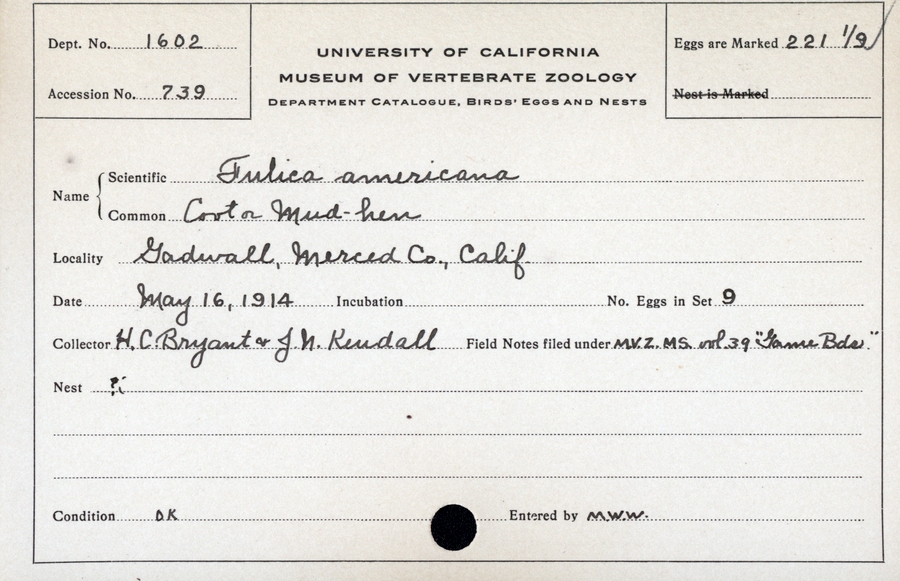 Dept. No. 1602
Accession No. 739
UNIVERSITY OF CALIFORNIA
MUSEUM OF VERTEBRATE ZOOLOGY
DEPARTMENT CATALOGUE, BIRDS' EGGS AND NESTS
Eggs are Marked 221 1/9
Nest is Marked
Name { Scientific Fulica americana
Common Coot or Mud-hen
Locality Gadwall, Merced Co., Calif
Date May 16, 1914 Incubation No. Eggs in Set 9
Collector H.C. Bryant & J.N. Kendall Field Notes filed under M.V.Z. MS. vol 39 "Game Bds."
Nest ?
Condition OK Entered by M.W.W.